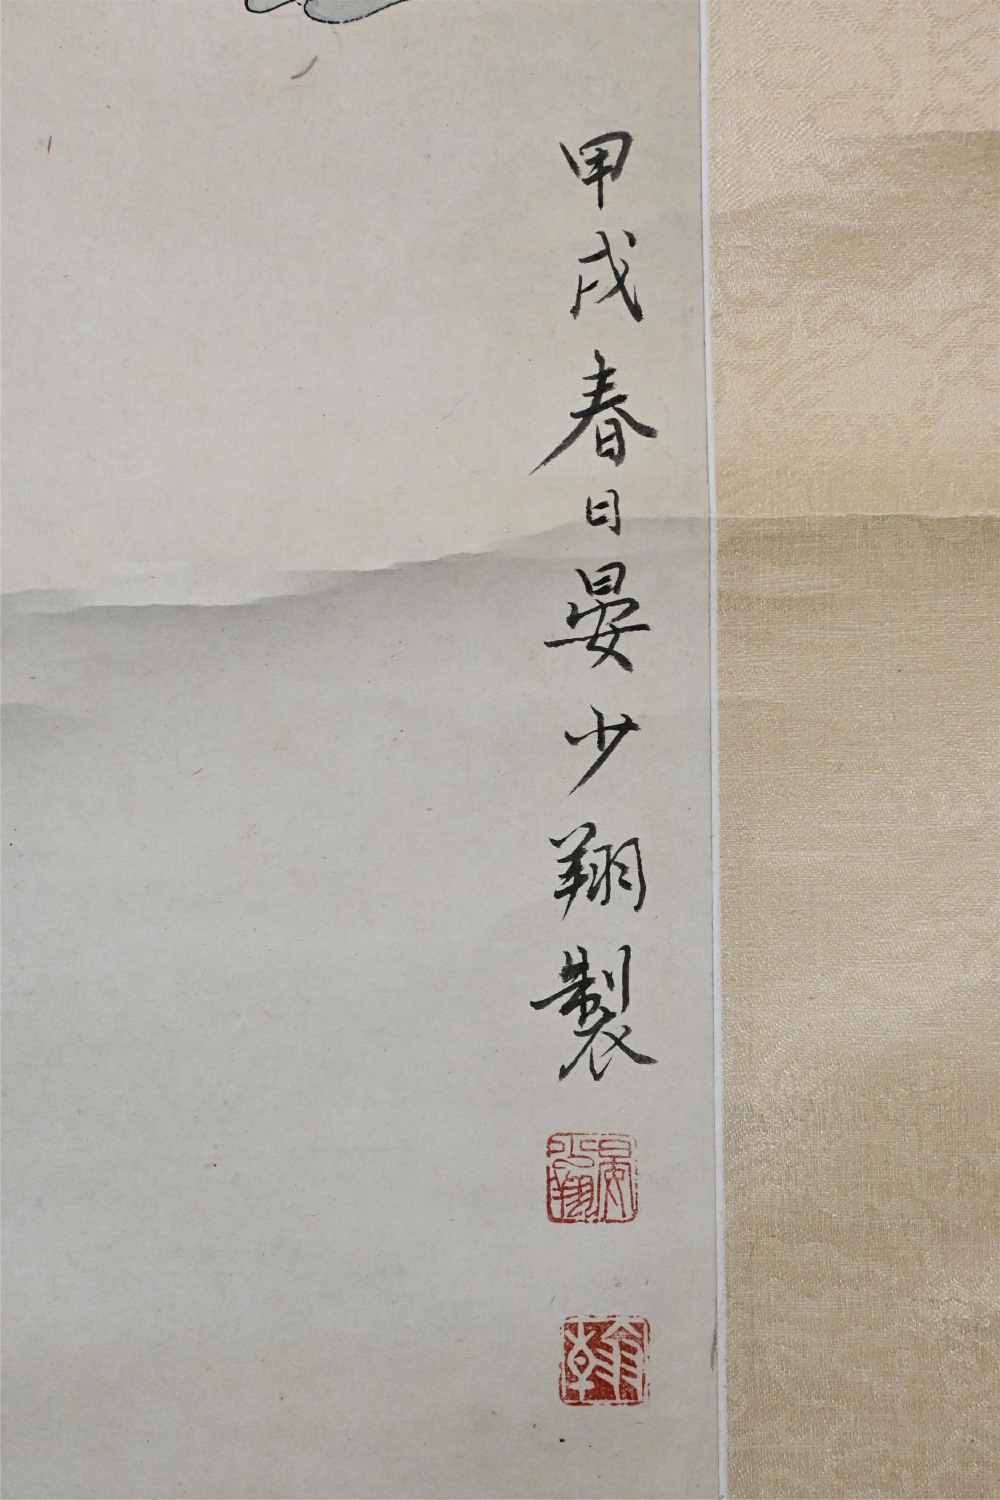 甲戌春日晏少翔製
晏少翔
翰